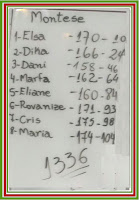 Montese
1-Elsa -170-10
2-Dika -166-24
3-Dani -158-46
4-Marfa -162-64
5-Eliane -160-84
6-Rovanize -171-93
7-Cris -175-98
8-Maria -174-104
1336